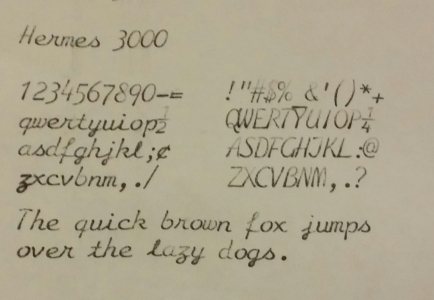 Hermes 3000
1234567890-= !"#$% &'()*+
qwertyuiop½ QWERTYUIOP¼
asdfghjkl;¢ ASDFGHJKL:@
zxcvbnm,./ ZXCVBNM,.?
The quick brown fox jumps
over the lazy dogs.